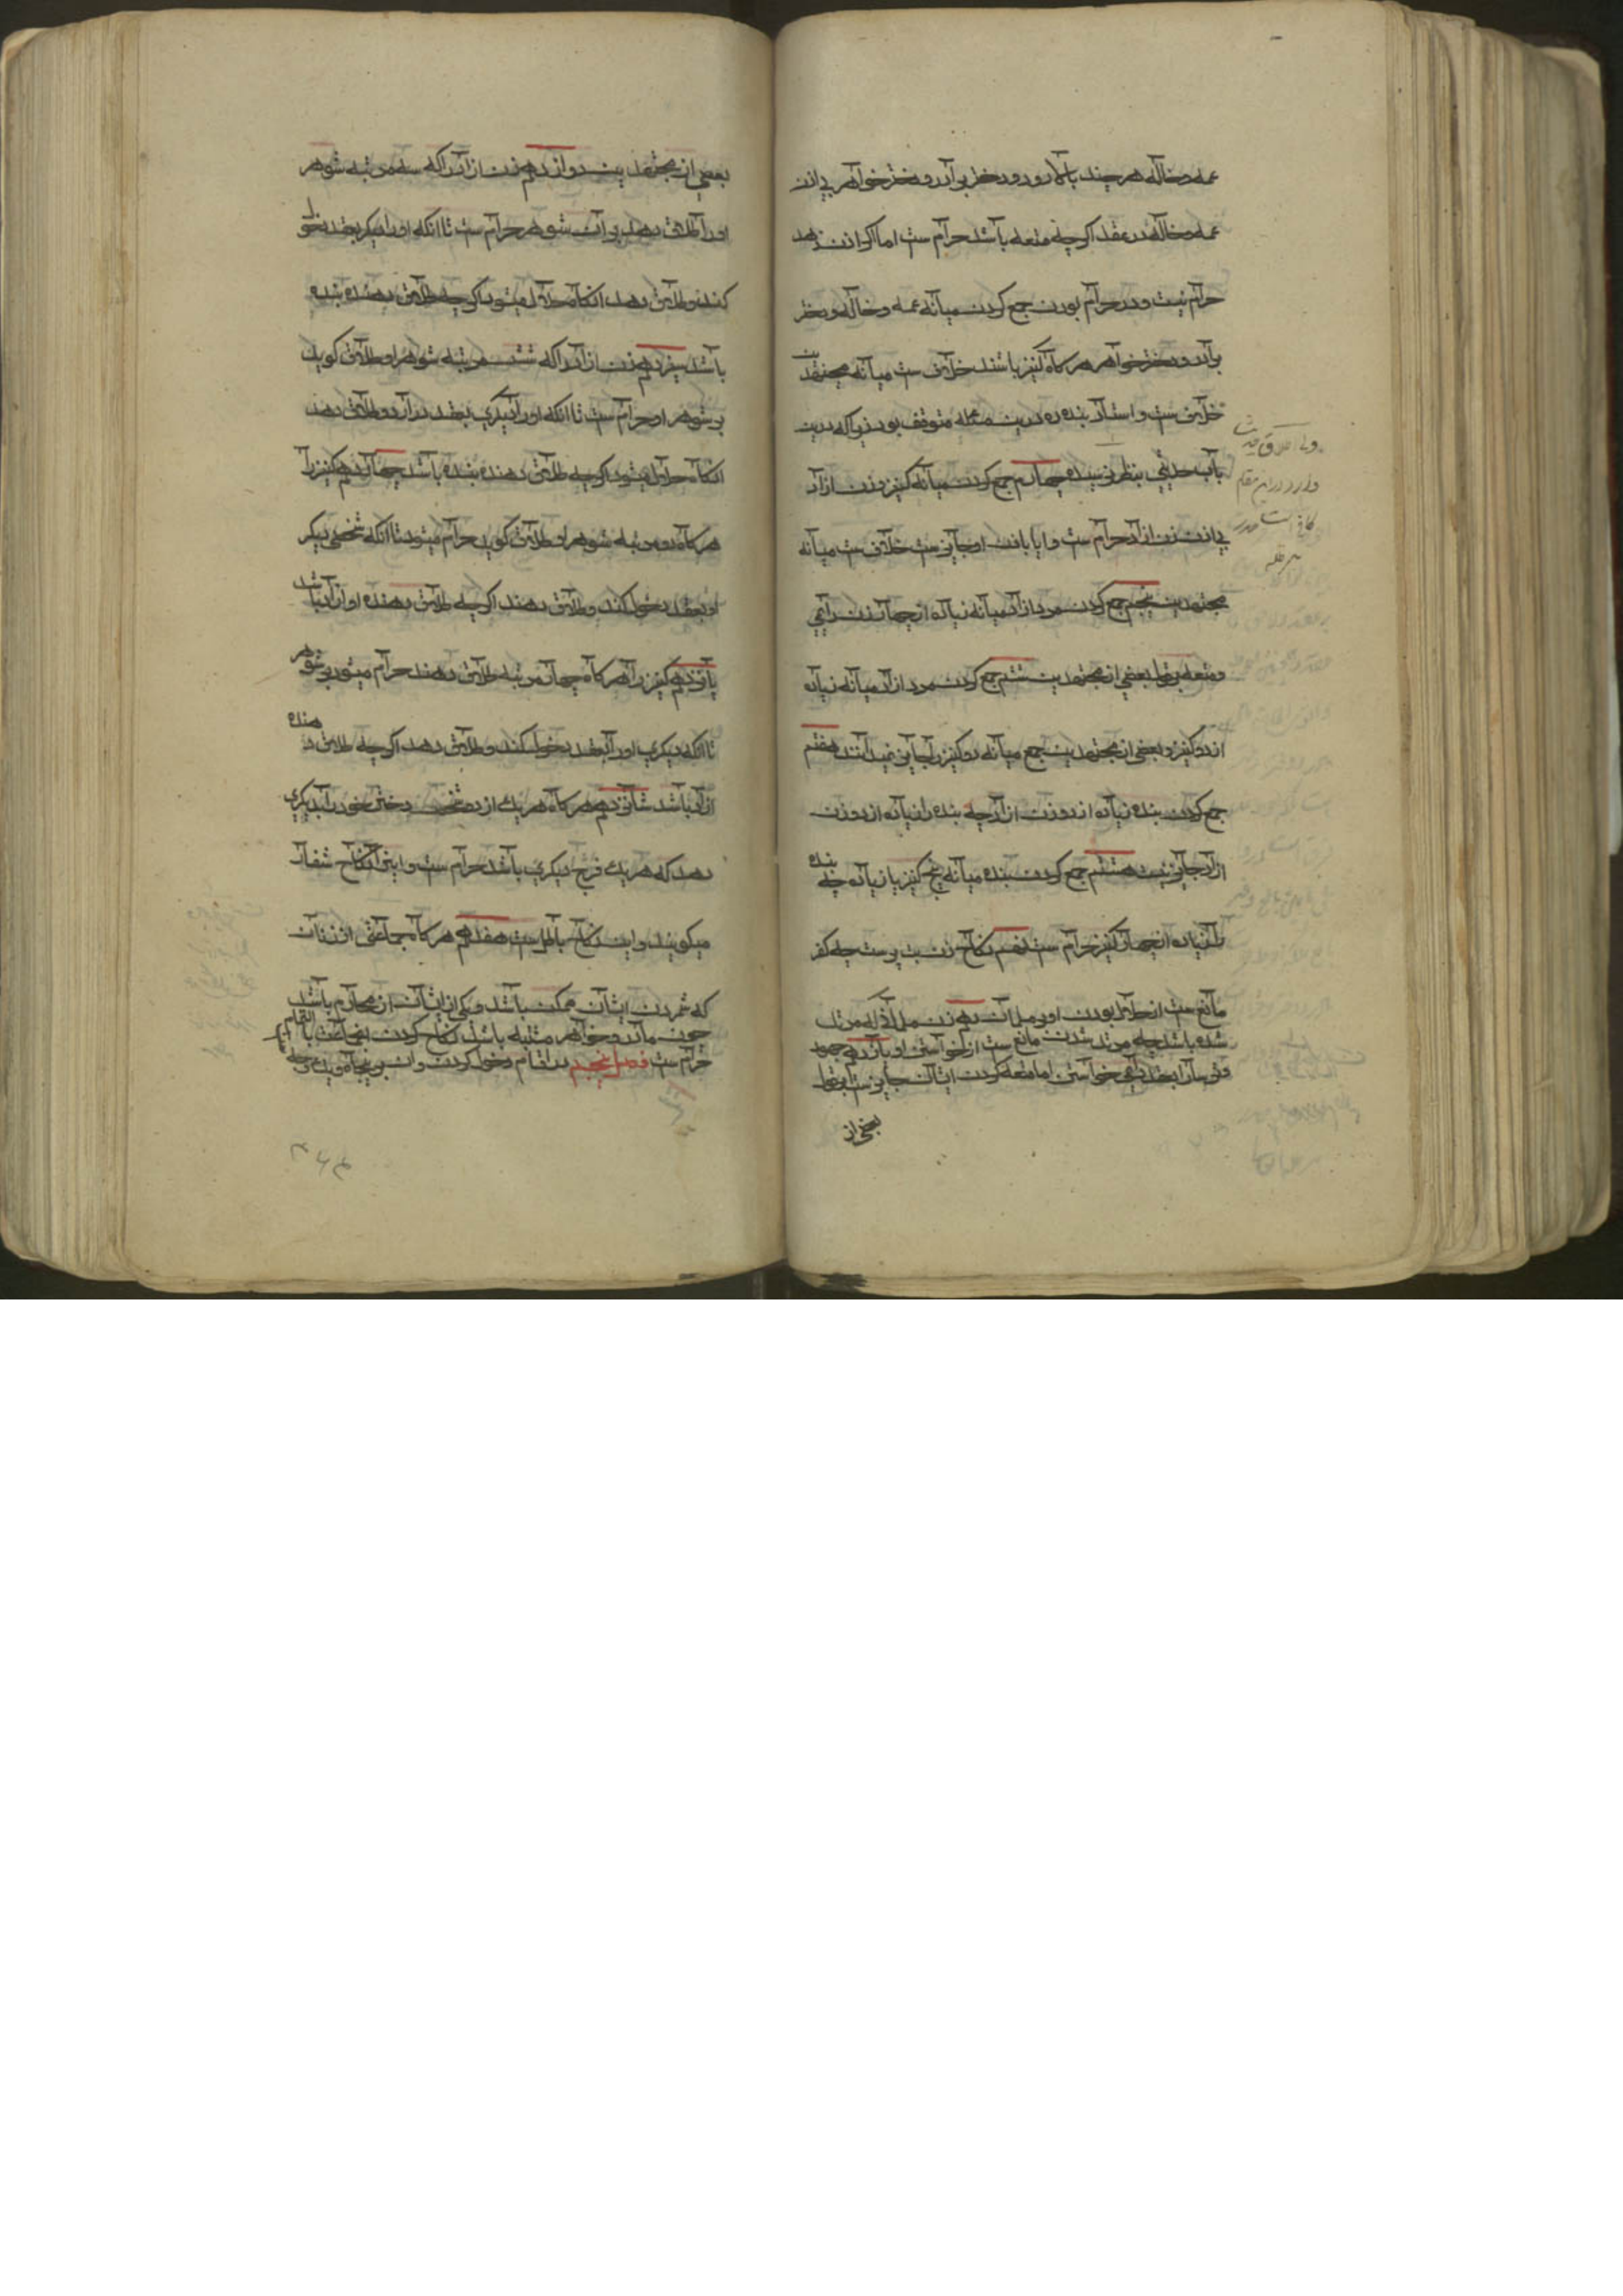 عمه و خاله هر چند بالا رود و دختر برادر و دختر خواهر بی اذن
عمه و خاله در عقد اگرچه متعه باشد حرام ست اما اگر اذن دهد
حرام نیست و در حرام بودن جمع کردن میانه عمه و خاله و دختر
برادر و دختر خواهر هر گاه کنیز باشند خلاف ست میانه مجتهدین
خلاف ست و استاد بنده ره درین مسئله متوقف بود زیرا که درین
باب حدیثی بنظر نرسیده چهارم جمع کردن میانه کنیز و زن ازاد
بی اذن زن ازاد حرام ست و ایا باذن او جایز ست خلاف ست میانه
مجتهدین پنجم جمع کردن مرد ازاد میانه زیاده از چهار زن دایمی
و متعه بقول بعضی از مجتهدین ششم جمع کردن مرد ازاد میانه زیاده
از دو کنیز و بعضی از مجتهدین جمع میانه دو کنیز را جایز نمیدانند هفتم
جمع کردن بنده زیاده از دو زن ازاد چه بنده را زیاده از دو زن
ازاد جایز نیست هشتم جمع کردن بنده میانه پنج کنیز یا زیاده چه بنده
را زیاده از چهار کنیز حرام ست نهم نکاح زن بت پرست چه کفر
مانع ست از حلال بودن او بر مسلمان دهم زن مسلمان که مرتد
شده باشد چه مرتد شدن مانع ست از خواستن او یازدهم جهود
و ترسا را بعقد دایمی خواستن اما متعه کردن ایشان جایز ست بقول
بعضی از
بعضی از مجتهدین دوازدهم زن ازاد را که سه مرتبه شوهر
او را طلاق دهد بر ان شوهر حرام ست تا انکه او را دیگر بعقد دخول
کند و طلاق دهد انگاه حلال میشود اگرچه طلاق دهنده بنده
باشد سیزدهم زن ازاد را که شش مرتبه شوهر او طلاق گوید
بر شوهر او حرام ست تا انکه او را دیگری بعقد در ارد و طلاق دهد
انگاه حلال میشود اگرچه طلاق دهنده بنده باشد چهاردهم کنیز را
هر گاه دو مرتبه شوهر او طلاق گوید حرام میشود تا انکه شخصی دیگر
او بعقد دخول کند و طلاق دهند اگرچه طلاق دهنده او ازاد باشد
پانزدهم کنیز را هر گاه چهار مرتبه طلاق دهند حرام میشود بر شوهر
تا انکه دیگری او را بعقد دخول کند و طلاق دهد اگرچه طلاق دهنده
ازاد باشد شانزدهم هر گاه هر یک از دو شخص دختر خود را بدیگری
دهد که مهر یک فرج دیگری باشد حرام ست و این را نکاح شغار
میگویند و این نکاح باطل ست هفدهم هر گاه جماعتی از زنان
که شمردن ایشان ممکن باشد و یکی از ایشان از محارم باشد
چون مادر و خواهر مشتبه باشد نکاح کردن بجماعت با
حرام ست فصل پنجم در اقسام دخول کردن و ان بر پنجاه و یک